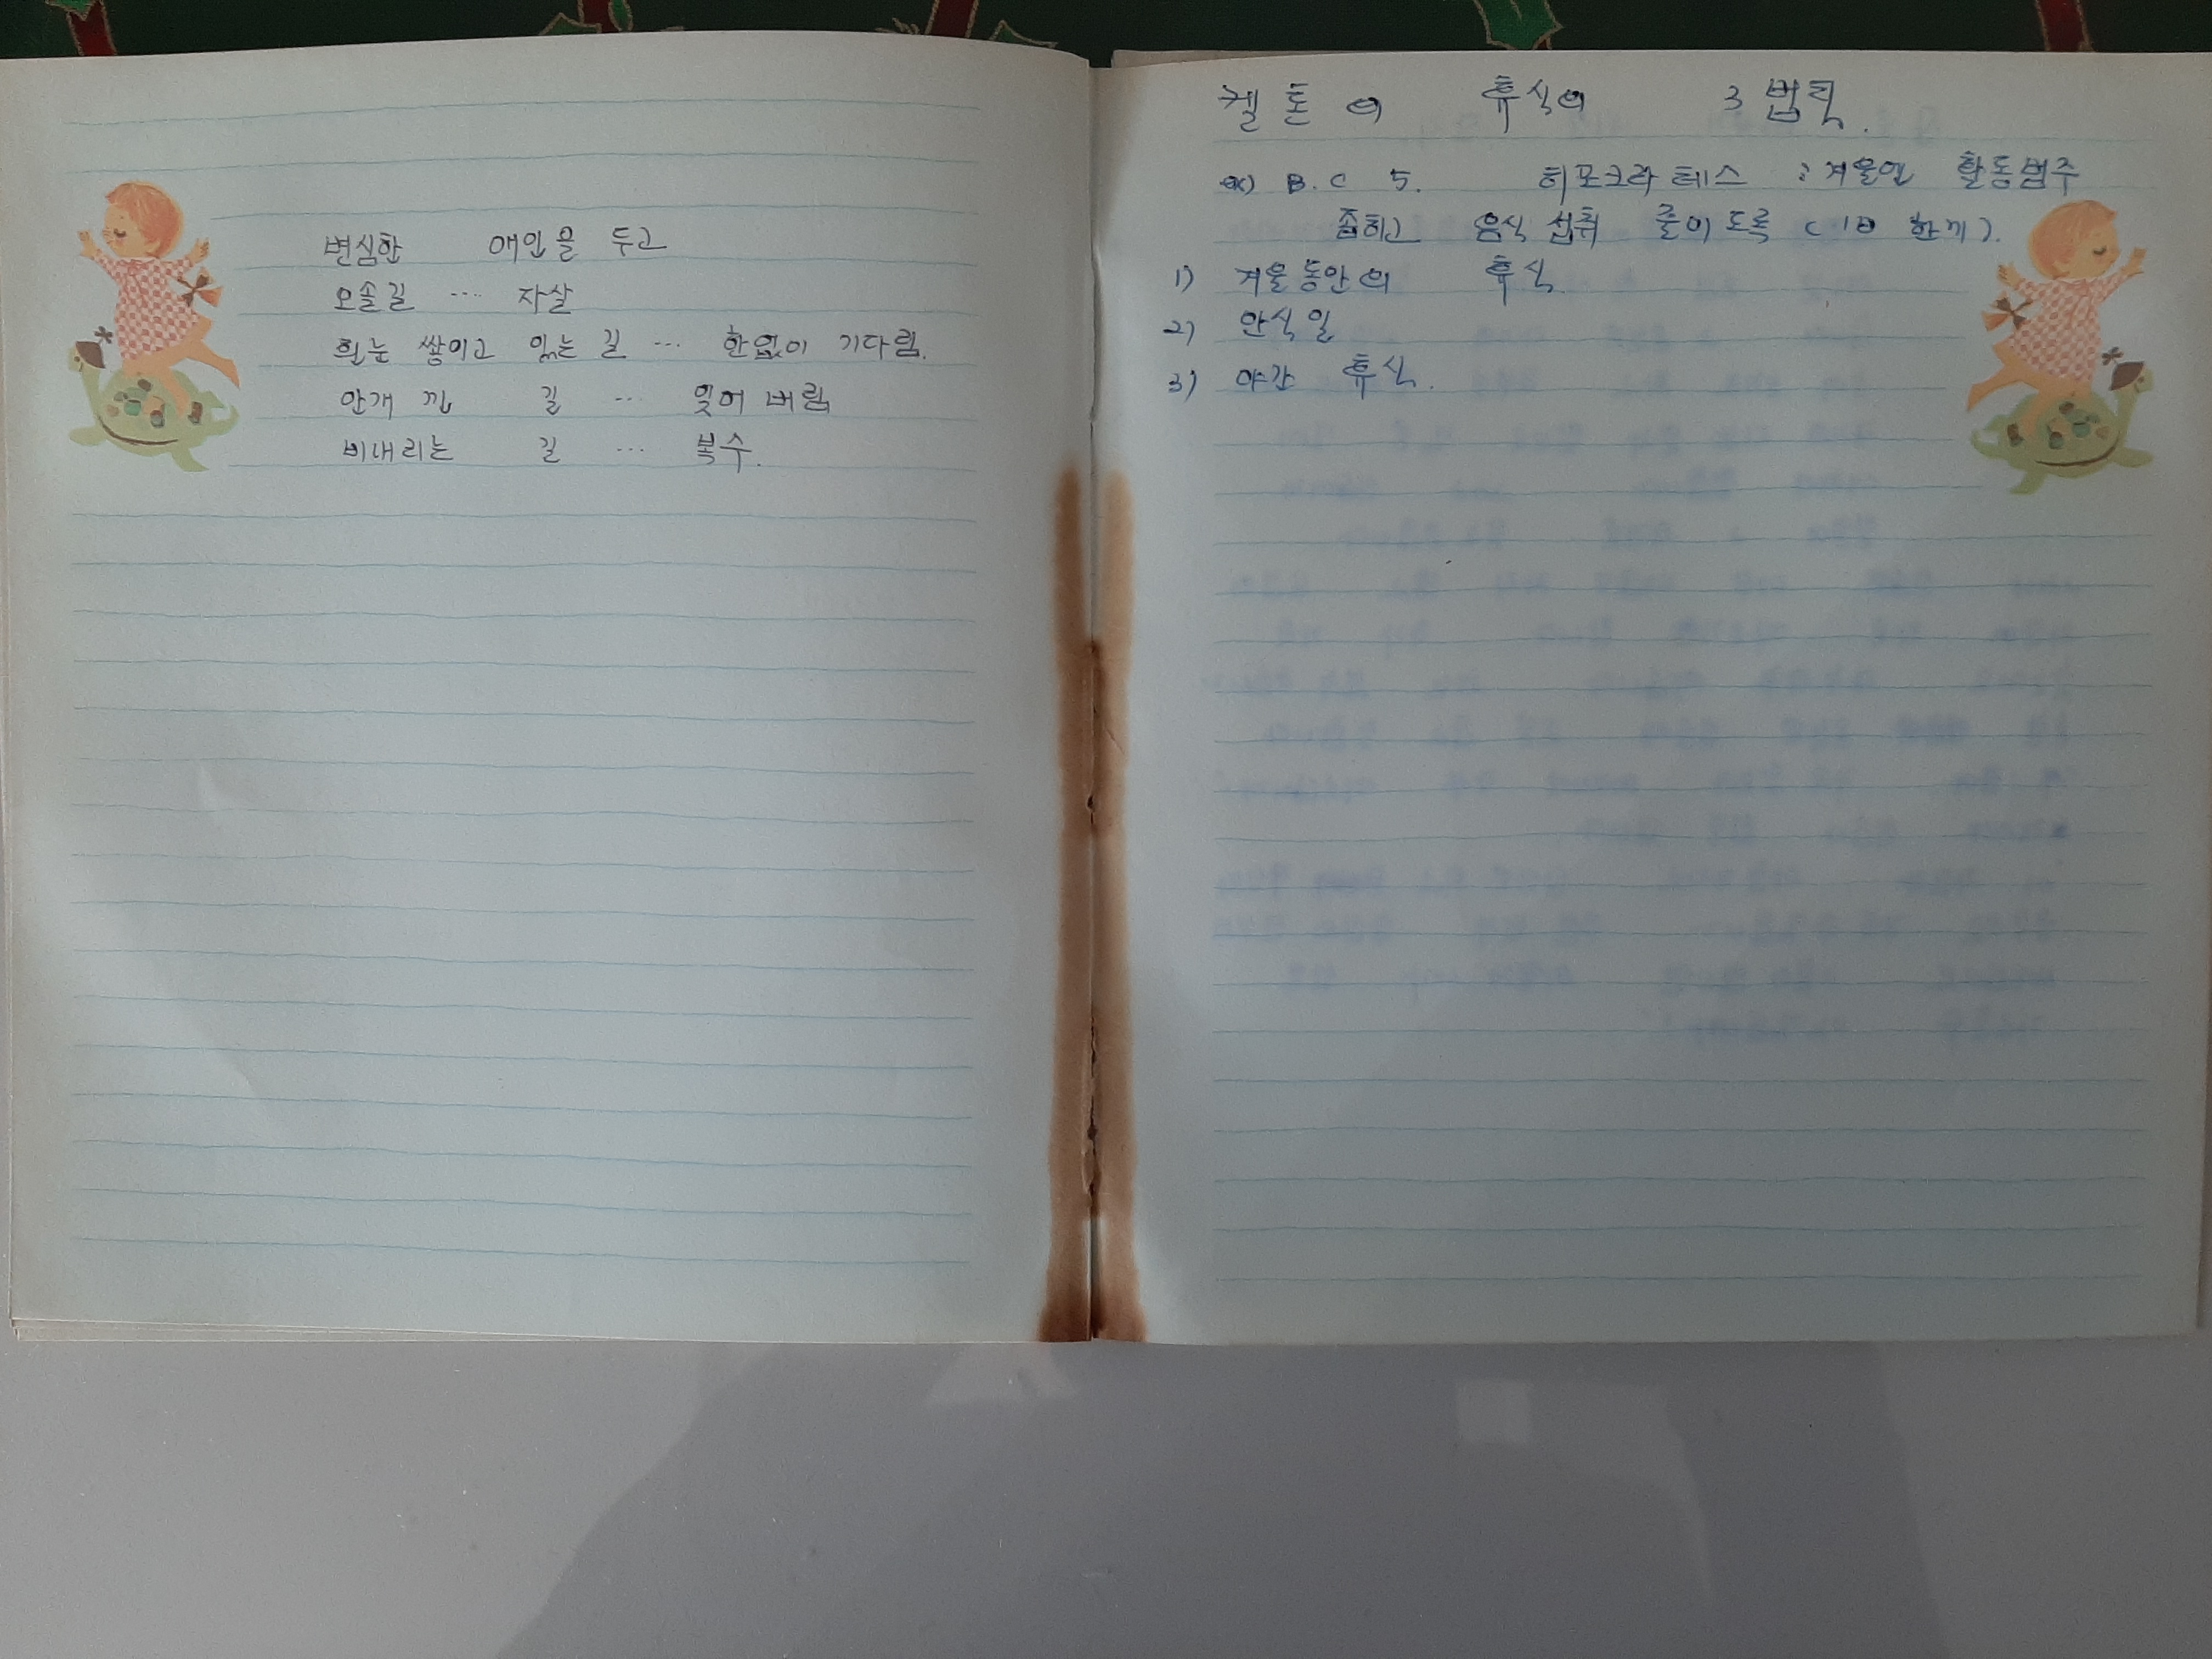 변심한 애인을 두고
오솔길 .... 자살
흰눈 쌓이고 있는 길 ... 한없이 기다림.
안개 낀 길 ... 잊어 버림
비내리는 길 ... 복수.
켈톤의 휴식의 3 법칙.
ex) B.C 5. 히포크라테스 : 겨울엔 활동범주
좁히고 음식 섭취 줄이도록 (1日 한끼).
1) 겨울동안의 휴식.
2) 안식일
3) 야간 휴식.